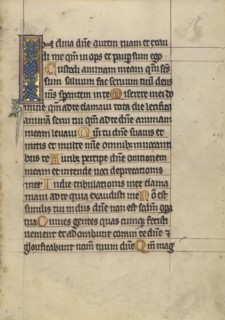 Inclina dñe aurem tuam et exau
di me qm̄ inops et paup sum ego
Custodi animam meam qm̄ scs̄
sum saluum fac seruum tuū deus
ms̄ sperantem in te Miserere mei do
mine qm̄ ad te clamaui tota die letifica
animā serui tui qm̄ ad te dñe animam
meam leuaui Qm̄ tu dñe suauis et
mitis et multe mie omnibȝ inuocanti
bus te Auribȝ percipe dñe orationem
meam et intende uoci deprecationis
mee In die tribulationis mee clama
ui ad te quia exaudisti me Non est
similis tui in diis dñe non est scdm̄ opa
tua Omnes gentes quascunqȝ fecisti
uenient et adorabunt coram te dñe &
glorificabunt nom̄ tuum dñe Qm̄ mag